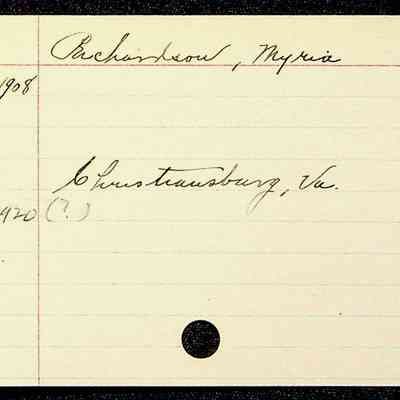 Richardson, Myria
1908
Christiansburg, Va.
1920 (?)